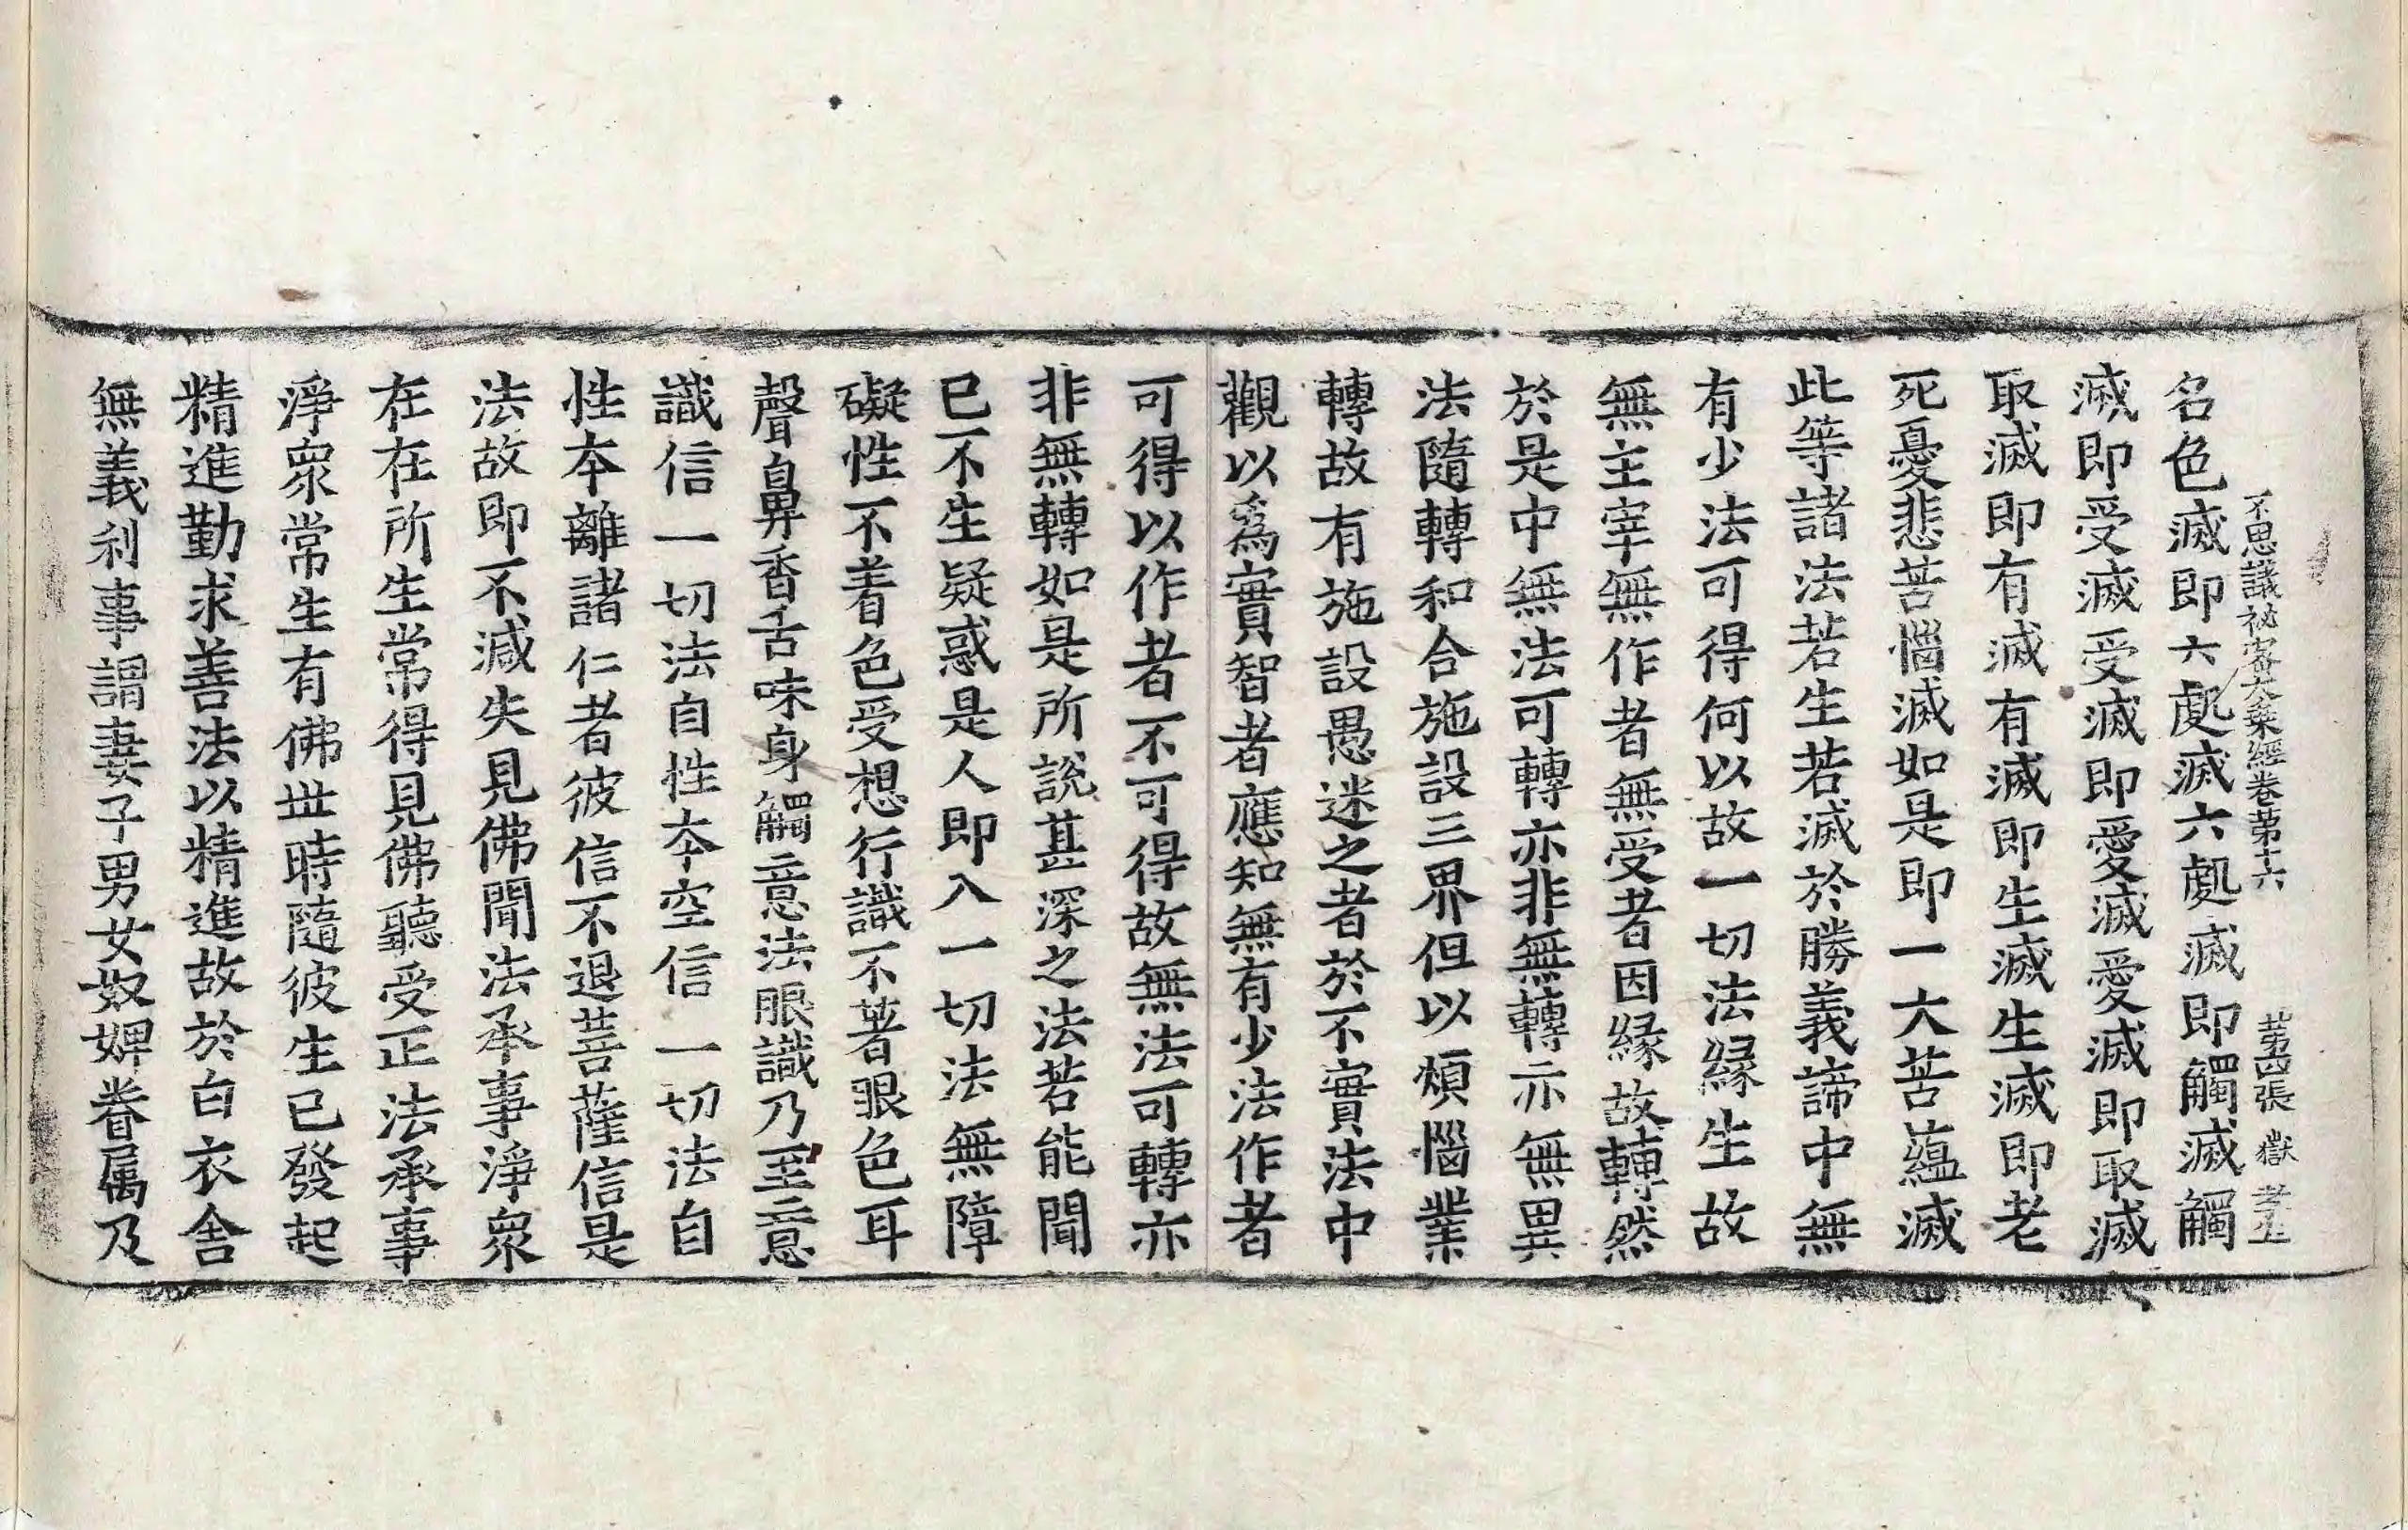 不思議祕密大乗經卷第十六　第四張　嶽　孝生
名色滅即六處滅六處滅即觸滅觸
滅即受滅受滅即愛滅愛滅即取滅
取滅即有滅有滅即生滅生滅即老
死憂悲苦惱滅如是即一大苦蘊滅
此等諸法若生若滅於勝義諦中無
有少法可得何以故一切法緣生故
無主宰無作者無受者因緣故轉然
於是中無法可轉亦非無轉亦無異
法隨轉和合施設三界但以煩惱業
轉故有施設愚迷之者於不實法中
觀以為實智者應知無有少法作者
可得以作者不可得故無法可轉亦
非無轉如是所說甚深之法若能聞
已不生疑惑是人即入一切法無障
礙性不着色受想行識不著眼色耳
聲鼻香舌味身觸意法眼識乃至意
識信一切法自性本空信一切法自
性本離諸仁者彼信不退菩薩信是
法故即不減失見佛聞法承事淨衆
在在所生常得見佛聽受正法承事
淨衆常生有佛世時隨彼生已發起
精進勤求善法以精進故於白衣舍
無義利事謂妻子男女奴婢眷属及